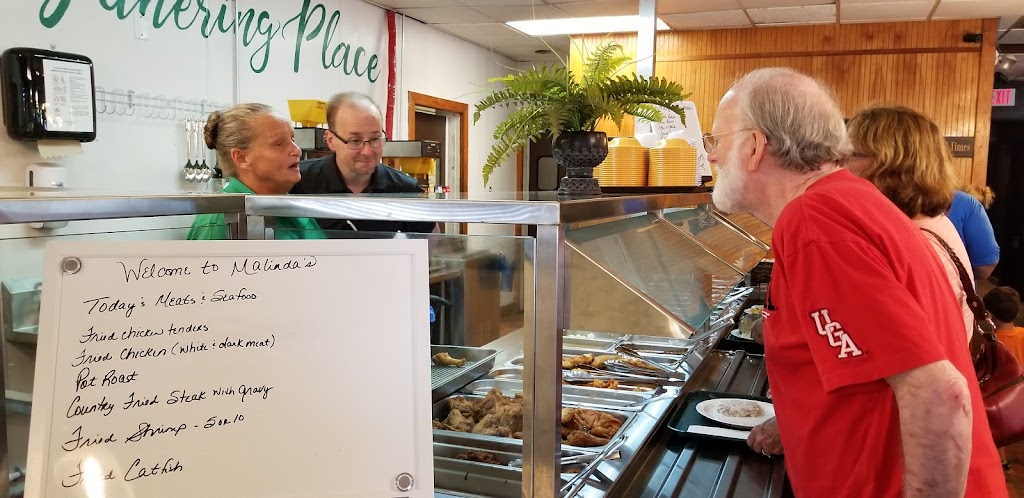 thering Place
Times
EXIT
Welcome to Malinda's
Today's Meats & Seafood
Fried chicken tenders
Fried Chicken (white & dark meat)
Pot Roast
Country Fried Steak with gravy
Fried Shrimp - 5 or 10
Fried Catfish
UGA